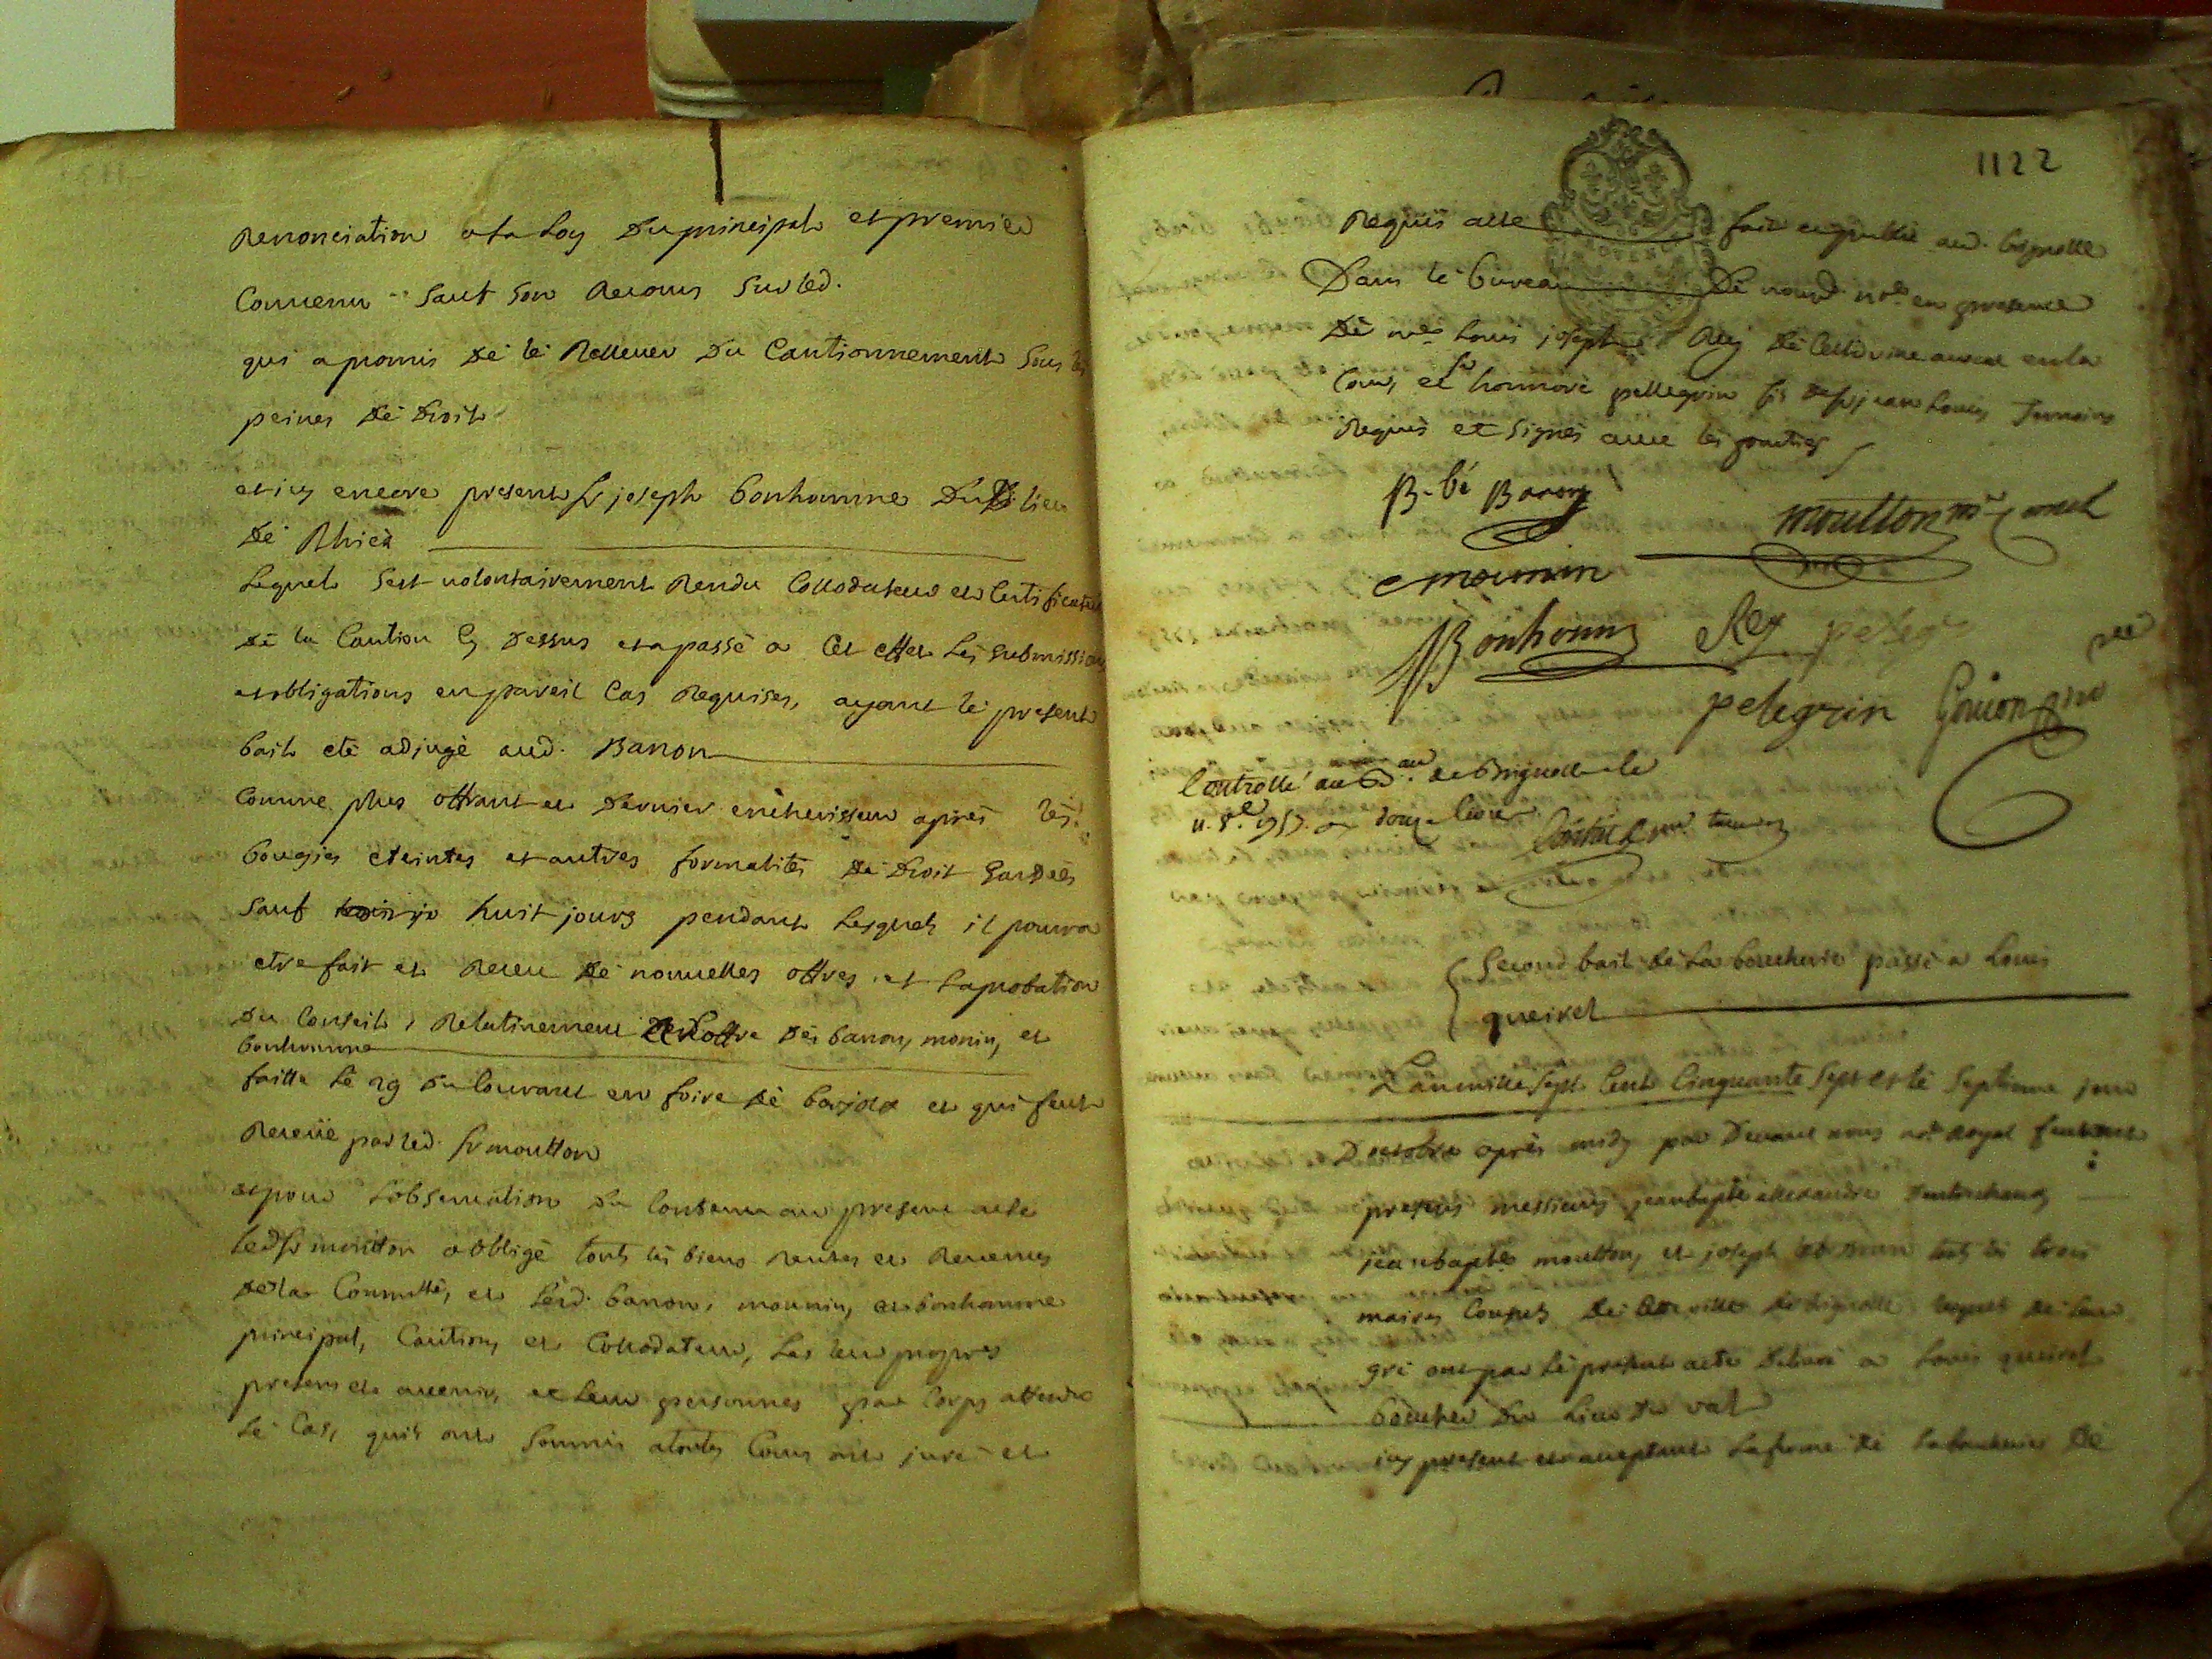 Renonciation a la Loy Du principal et premier
Convenu Sauf Son Recours Sur led.
qui a promis de le Rellever Du Cautionnement Sous les
peines de Droit
et icy encore present Sr joseph bonhomme Du lieu
de Rhiés
Lequel Sest volontairement Rendu Collodateur et Certificateur
de la Caution Cy Dessus et a passé a Cet effet Les Submissions
et obligations en pareil Cas Requises, ayant le present
bail eté adjugé aud. Banon
Comme plus offrant et Dernier encherisseur aprés les
bougies eteintes et autres formalités de Droit Gardées
Sauf huit jours pendant Lesquels il pourra
etre fait et Receu de nouvelles offres et Laprobation
Du Conseil, Relativement offre des banon, monin, et
bonhomme
faitte le 29 du Courant en foire de barjolx et qui feut
Receüe par led. Sr moutton
et pour Lobservation du Contenu au present acte
led Sr moutton a obligé touts les biens Rentes et Revenus
de la Commtté, et Lesd. banon, mounin, et bonhomme
principal, Caution, et Collodateur, Les leur propres
presens et avenir, et leur personnes par Corps attendu
le Cas, quils ont Soumis a toutes Cours ont juré et
1122
Requis acte fait et publié aud. brignolle
Dans le bureau De nousd. nore en presence
de Me Louis joseph Rey
Cour, et Sr honnoré pellegrin fils de feu jean Louis Temoins
Requis et Signés avec les parties
moutton mre Consul
mounin
Bonhomme Rey
pelegrin Guion
Controllé au Bau. de Brignolle le
11. 8bre 1757. douze livres
Second bail de La boucherie passé a Louis
queirel
L'an mille Sept Cent Cinquante Sept et le Septieme jour
Doctobre aprés midy par Devant nous nore Royal feurent
presens messieurs jean bapte allexandre
jean bapte moutton, et joseph touts les trois
maires Consuls de cette ville de brignolle lequels de leur
gré ont par le present acte Delivré a Louis queirel
boucher Du Lieu du val
icy present et acceptant La ferme de La boucherie de